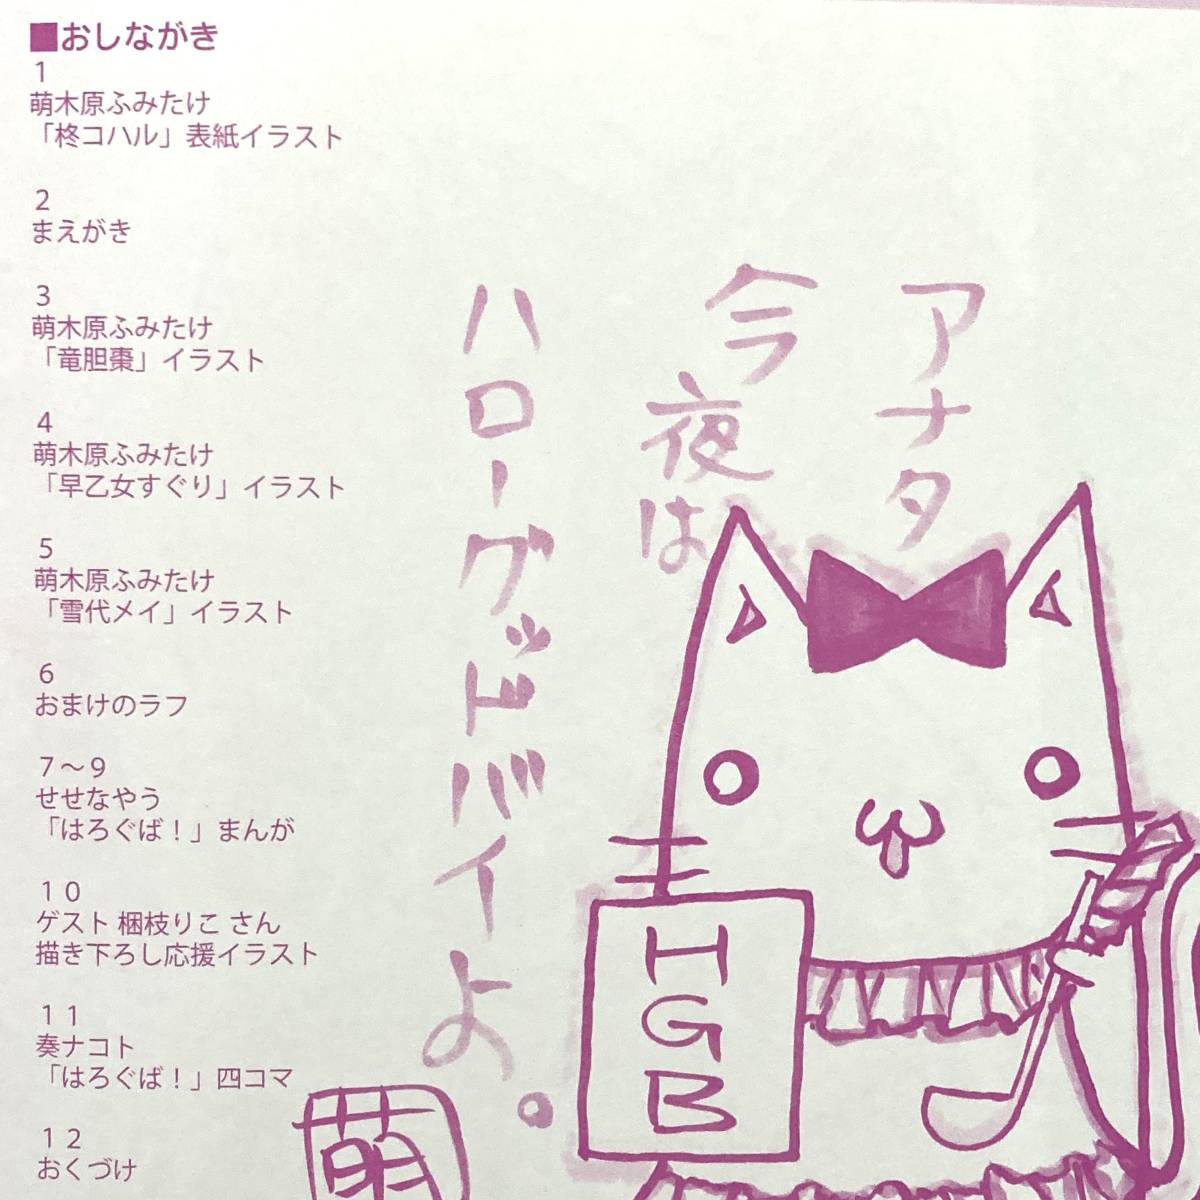 ■おしながき
1
萌木原ふみたけ
「柊コハル」表紙イラスト
2
まえがき
3
萌木原ふみたけ
「竜胆棗」イラスト
4
萌木原ふみたけ
「早乙女すぐり」イラスト
5
萌木原ふみたけ
「雪代メイ」イラスト
6
おまけのラフ
7～9
せせなやう
「はろぐば！」まんが
10
ゲスト 梱枝りこ さん
描き下ろし応援イラスト
11
奏ナコト
「はろぐば！」四コマ
12
おくづけ
アナタ
今夜は
ハローグッドバイよ。
H
G
B
萌